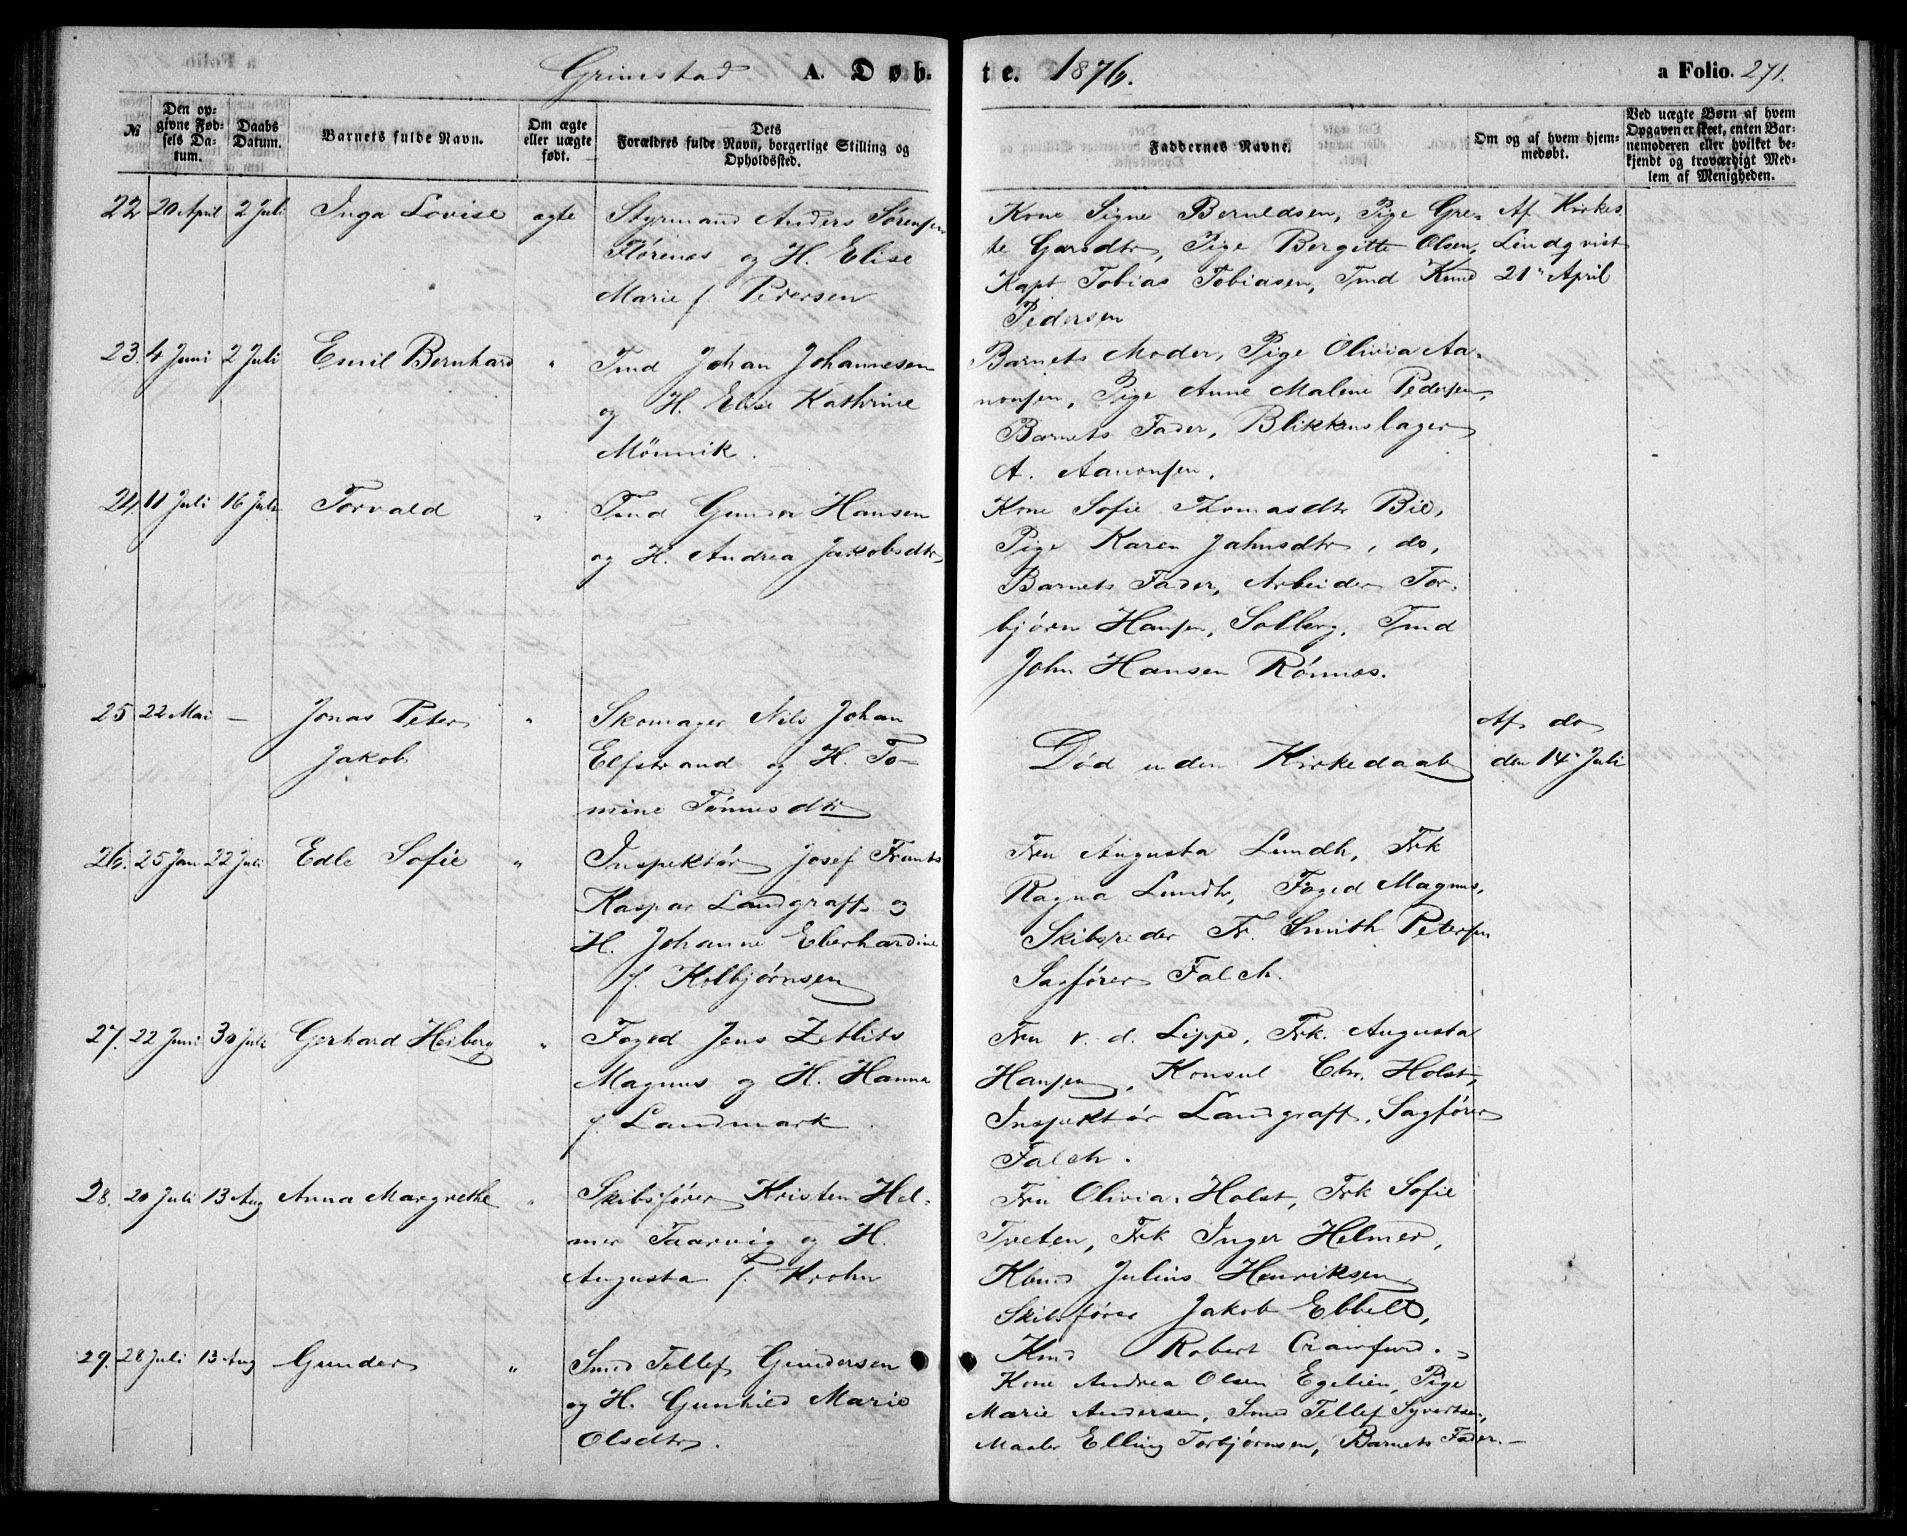 Grimstad A. Døbte. 1876. a Folio. 271.
№
Den opgivne Fødsels Datum.
Daabs Datum.
Barnets fulde Navn.
Om ægte eller uægte født.
Dets Forældres fulde Navn, borgerlige Stilling og Opholdssted.
Faddernes Navne.
Om og af hvem hjemmedøbt.
Ved uægte Børn af hvem Opgaven er skeet, enten Barnemoderen eller hvilket bekjendt og troværdigt Medlem af Menigheden.
22 20 April 2 Juli Inga Lovise ægte
Styrmand Anders Sørensen
Flørenæs og H. Elise
Marie f Petersen
Kone Signe Beruldsen, Pige Gre-
te Garsdtr, Pige Bergitte Olsen,
Kapt Tobias Tobiasen, Tmd Knud
Pedersen
Af Kirkes.
Lindqvist
21 April
23. 4 Juni 2 Juli Emil Bernhard "
Tmd Johan Johannesen
og H. Elise Kathrine
Mönnik.
Barnets Moder, Pige Olivia Aa-
nonsen, Pige Anne Malene Pedersen,
Barnets Fader, Blikkenslager
A. Aanonsen.
24. 11 Juli 16 Juli Torvald "
Tmd Gunder Hansen
og H. Andrea Jakobsdtr
Kone Sofie Thomasdtr Bie,
Pige Karen Jahnsdtr, do,
Barnets Fader, Arbeider Tor-
bjørn Hansen, Solberg, Tmd
John Hansen Rönnes.
25 22 Mai — Jonas Peter
Jakob "
Skomager Nils Johan
Elfstrand og H. To-
mine Tönnesdtr
Död uden Kirkedaab
Af do
den 14 Juli
26. 25 Jan 22 Juli Edle Sofie "
Inspektör Josef Frants
Kaspar Landgraff og
H. Johanne Eberhardine
f. Kolbjørnsen
Fru Augusta Lundh, Frk
Ragna Lundh, Foged Magnus,
Skibsreder Fr. Smith Petersen
Sagfører Falch.
27. 22 Juni 30 Juli Gerhard Heiberg "
Foged Jens Zetlits
Magnus og H. Hanna
f. Landmark.
Fru v. d. Lippe, Frk. Augusta
Hansen, Konsul Chr. Holst,
Inspektör Landgraff, Sagfører
Falch.
28. 20 Juli 13 Aug Anna Margrethe "
Skibsfører Kristen Hel-
mer Taarvig og H.
Augusta f. Krohn
Fru Olivia Holst, Frk Sofie
Tveten, Frk Inger Helmer,
Kbmd Julius Henriksen,
Skibsfører Jakob Ebbelt,
Kmd Robert Crawfurd.
29. 28 Juli 13 Aug Gunder "
Smed Tellef Gundersen
og H. Gunhild Marie
Olsdtr.
Kone Andrea Olsen Egelien, Pige
Marie Andersen, Smed Tellef Syvertsen,
Maaler Elling Torbjørnsen, Barnets Fader.—